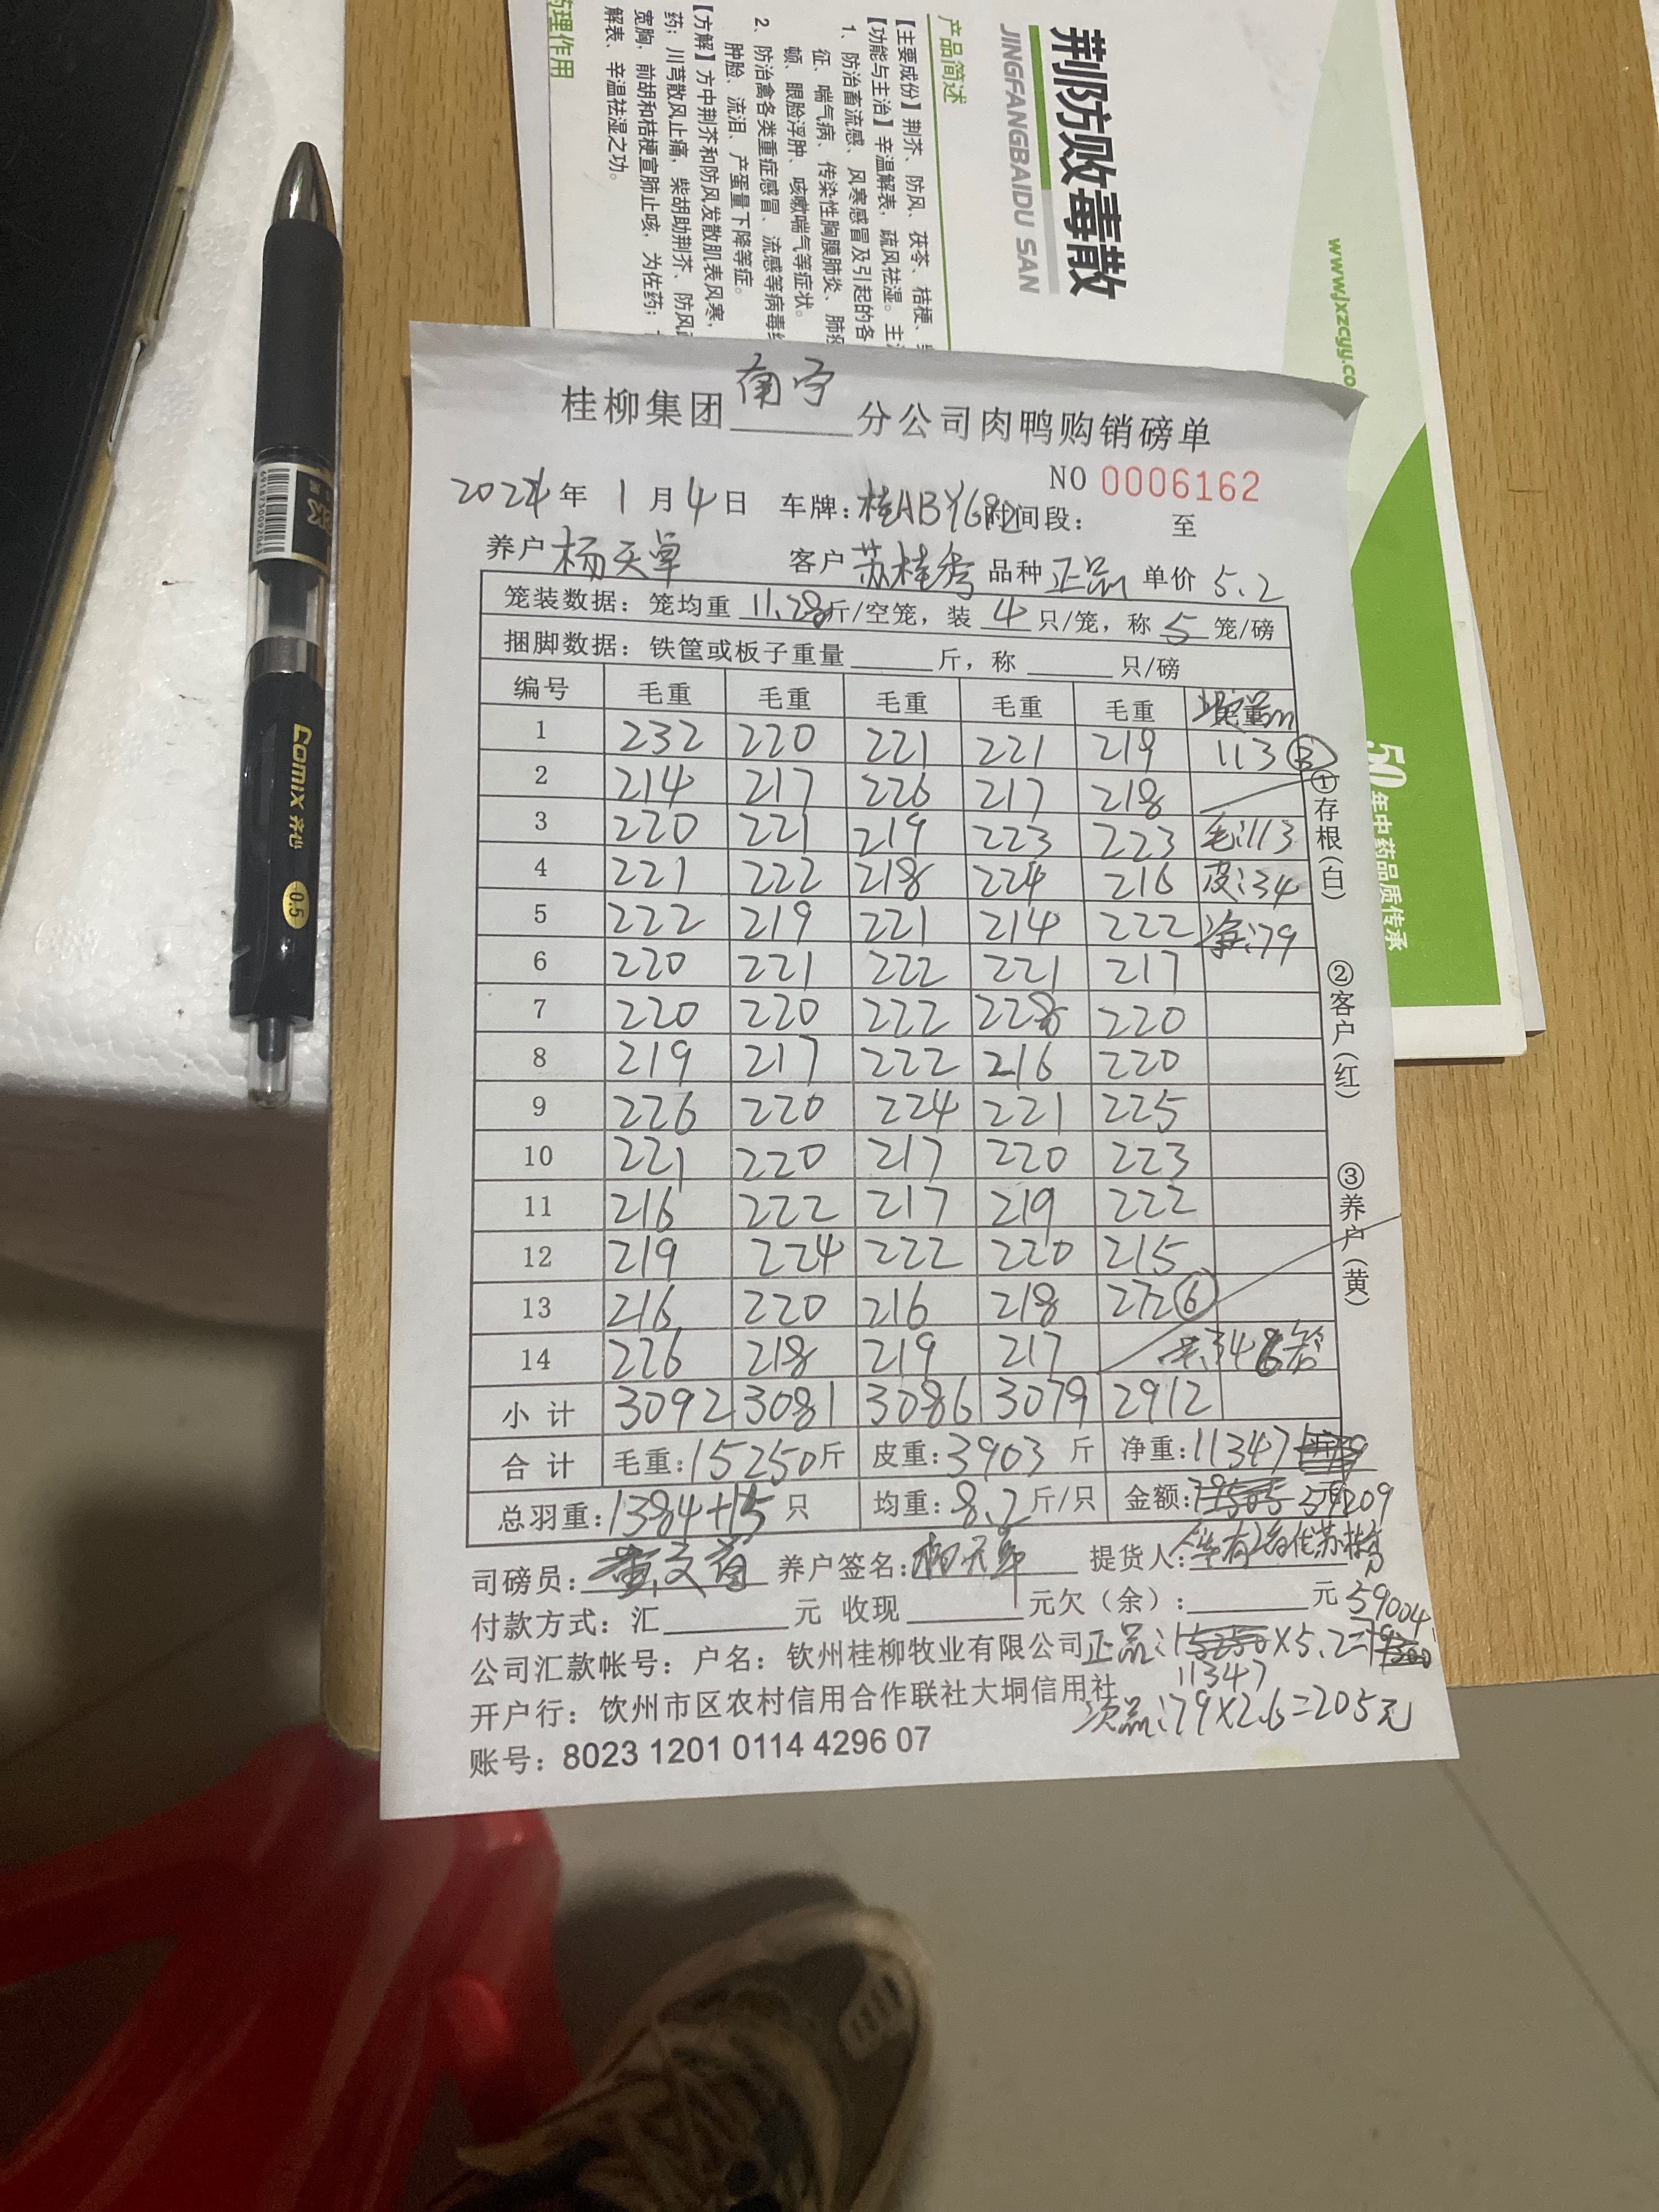 荆防败毒散
JINGFANGBAIDU SAN
www.jxzcyy.co
50年中药品质传承
产品简述
【主要成份】荆芥、防风、茯苓、桔梗、
【功能与主治】辛温解表,疏风祛湿。主
1、防治畜流感、风寒感冒及引起的各
征、喘气病、传染性胸膜肺炎、肺
顿、眼睑浮肿、咳嗽喘气等症状。
2、防治禽各类重症感冒、流感等病毒
肿脸、流泪、产蛋量下降等症。
【方解】方中荆芥和防风发散肌表风寒,
药;川芎散风止痛,柴胡助荆芥、防风
宽胸,前胡和桔梗宣肺止咳,为佐药;
解表、辛温祛湿之功。
药理作用
Comix 齐心
0.5
6918730092063
桂柳集团南宁分公司肉鸭购销磅单
NO 0006162
2024年 1月4日 车牌:桂ABY682 时间段: 至
养户 杨天卓 客户 苏桂秀 品种 正品 单价 5.2
笼装数据:笼均重 11.28 斤/空笼,装 4 只/笼,称 5 笼/磅
捆脚数据:铁筐或板子重量 斤,称 只/磅
编号 毛重 毛重 毛重 毛重 毛重
1 232 220 221 221 219 113 ③
2 214 217 226 217 218
3 220 221 219 223 223 毛:113
4 221 222 218 224 216 皮:34
5 222 219 221 214 222 净:79
6 220 221 222 221 217
7 220 220 222 228 220
8 219 217 222 216 220
9 226 220 224 221 225
10 221 220 217 220 223
11 216 222 217 219 222
12 219 224 222 220 215
13 216 220 216 218 272 ⑥
14 226 218 219 217 共346笼
小计 3092 3081 3086 3079 2912
合计 毛重:15250斤 皮重:3903斤 净重:11347
总羽重:1384+15只 均重:8.2斤/只 金额: 59209
司磅员: 养户签名:杨天卓 提货人: 代苏桂秀
付款方式:汇 元 收现 元欠(余): 元
59004
公司汇款帐号:户名:钦州桂柳牧业有限公司 正品: ×5.2=
11347
开户行:钦州市区农村信用合作联社大垌信用社
次品:79×2.6=205元
账号:8023 1201 0114 4296 07
①存根(白) ②客户(红) ③养户(黄)